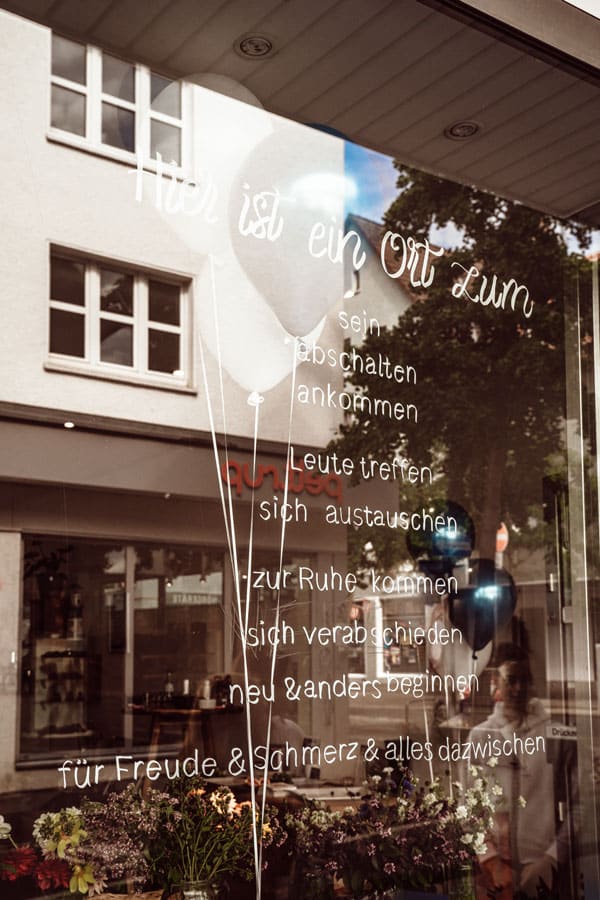 Hier ist ein Ort zum
sein
abschalten
ankommen
Leute treffen
sich austauschen
zur Ruhe kommen
sich verabschieden
neu & anders beginnen
für Freude & Schmerz & alles dazwischen